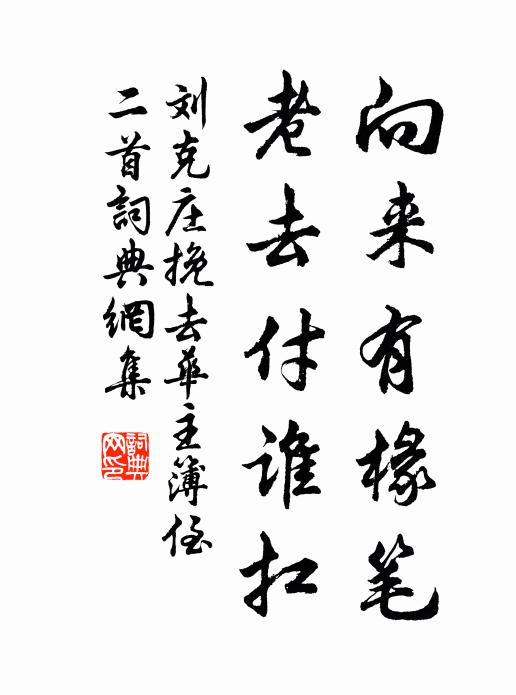 向来有椽笔
老去付谁扛
刘克庄挽去华主簿侄
二首詞典網集
詞典网印